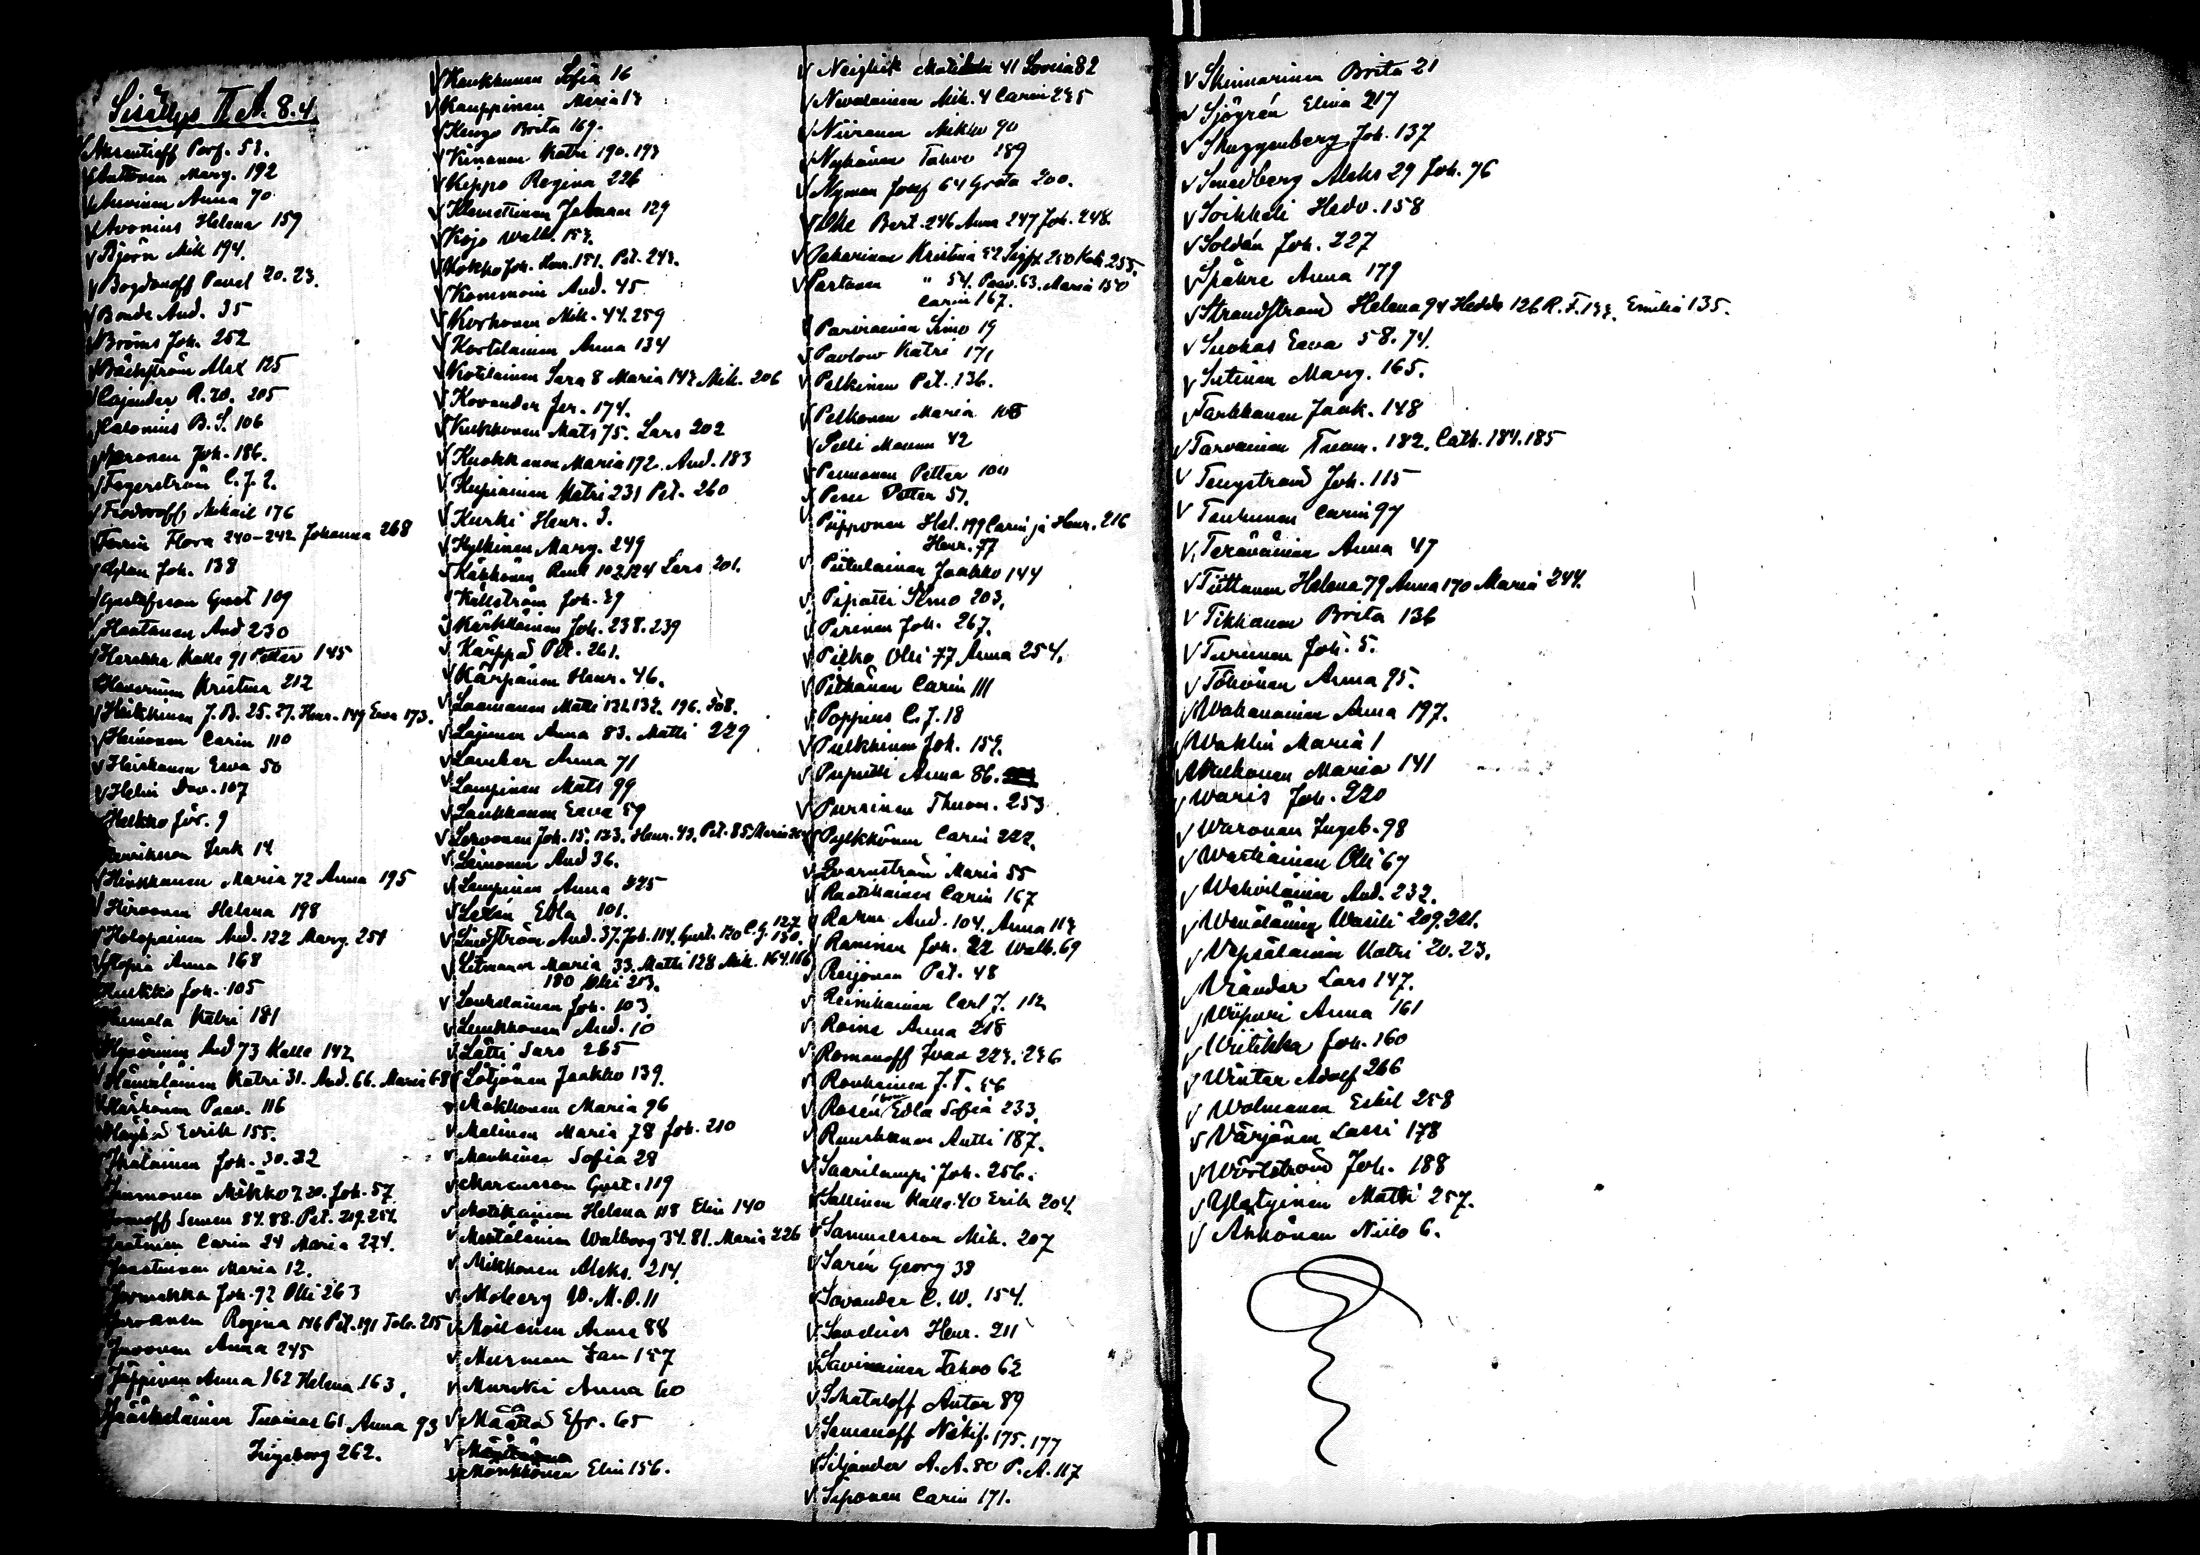 Sisällys II A. 8.4
Arsentieff Porf. 53.
Anttonen Marg. 192
Arvinen Anna 70
Avonius Helena 159
Björn Mik 194.
Bogdanoff Pavel 20. 23.
Bonde And. 35
Broms Joh. 252
Bäckström Alex 125
Cajander R. W. 205
Calonius B. S. 106
Joh. 186.
Fagerström C. J. 2.
Feodoroff Mikail 176
Flora 240-242 Johanna 268
Joh. 138
Gustafsson Gust 109
Hautanen And 230
Kalle 91 Petter 145
Havorinen Kristina 212
Heikkinen J. B. 25. 27. Henr. 149 Eeva 173.
Heinonen Carin 110
Heiskanen Eeva 50
Helin Dav. 107
Helkko Jör. 9
Henriksson Erik 14
Hirvikanen Maria 72 Anna 195
Hirvonen Helena 198
Holopainen And. 122 Marg. 251
Hopia Anna 168
Huikko Joh. 105
Humala Katri 181
Hyvärinen And 73 Kalle 142
Hämäläinen Katri 31. And. 66. Maria 68
Härkönen Paav. 116
Häyhä Eerik 155.
Ikalainen Joh. 30. 32
Immonen Mikko 7. 20. Joh. 57
Semen 84. 88. Pet. 219. 254
Jaatinen Carin 24 Maria 224.
Jaatinen Maria 12.
Jormakka Joh. 92 Olli 263
Regina 146 Pet. 191 Joh. 215
Juvonen Anna 245
Jäppinen Anna 162 Helena 163.
Jääskeläinen Tuomas 61 Anna 93
Ingeborg 262.
Kaukkunen Sofia 16
Kauppinen Maria 13
Kengo Brita 169.
Kinanen Katri 190. 193
Keppo Regina 226
Klemettinen Johnan 129
Kojo Walb. 153.
Kokko Joh. Henr. 151. Pet. 243.
Kommoin And. 45
Korhonen Mik. 44. 259
Kortelainen Anna 134
Kotilainen Sara 8 Maria 143 Mik. 206
Kovander Jer. 174.
Kukkonen Mats 75. Lars 202
Kuokkanen Maria 172. And. 183
Kupiainen Katri 231 Pet. 260
Kurki Henr. 3.
Kylkinen Marg. 249
Käkkönen Paul 102.124 Lars 201.
Källström Joh. 39
Kärkkäinen Joh. 238. 239
Kärppä Pet. 261.
Kärpänen Henr. 46.
Laamanen Matti 131. 132. 196. 208.
Lajunen Anna 83. Matti 229
Lanker Anna 71
Lampinen Mats 99
Laukkanen Eeva 59
Leivonen Joh. 15. 123. Henr. 43. Pet. 85. Maria
Leinonen And 36.
Lempinen Anna 225
Lexén Edla 101.
Lindström And. 37. Joh. 114. Gust. 120 C. G. 127
J. 130.
Litmanen Maria 33. Matti 128 Mik. 164. 166
180 Olli 213.
Loukolainen Joh. 103
Lunkkonen And. 10
Lätti Lars 265
Lötjönen Jaakko 139.
Makkonen Maria 96
Malinen Maria 78 Joh. 210
Mankinen Sofia 28
Marcusson Gust. 119
Matikainen Helena 118 Elin 140
Mertäläinen Walborg 34. 81. Maria 226
Mikkonen Aleks. 214
Moberg W. M. O. 11
Moilanen Anna 88
Murman Jan 157
Murski Anna 60
Määttä Efr. 65
Mönkkönen Elin 156.
Neiglick Matilda 41 Lovisa 82
Nevalainen Mik. 4 Carin 235
Niiranen Mikko 90
Nykänen Tahvo 189
Nyman Josef 64 Greta 200.
Ohe Bert. 246 Anna 247 Joh. 248.
Pakarinen Kristina 52 Sigfr. 250 Katr. 255.
Partanen " 54. Paav. 63. Maria 150
Carin 167.
Parviainen Simo 19
Pavlow Katri 171
Pelkinen Pet. 136.
Pelkonen Maria 108
Pelli Maunu 42
Permanen Petter 100
Pesu Petter 51.
Piipponen Hel. 199 Carin ja Henr. 216
Henr. 77
Piitulainen Jaakko 144
Pipatti Simo 203.
Pirinen Joh. 267.
Pitko Olli 77 Anna 254.
Pitkänen Carin 111
Poppius C. J. 18
Pulkkinen Joh. 159.
Puputti Anna 86.
Pursinen Thuom. 253
Pylkkönen Carin 222.
Qvarnström Maria 55
Raatikainen Carin 167
Rahm And. 104. Anna 113
Raninen Joh. 22 Walb. 69
Reijonen Pet. 48
Reinikainen Carl J. 112
Roine Anna 218
Romanoff Ivan 223. 236
Ronkainen J. T. 56
Rosén Edla Sofia 233.
Ruuskanen Antti 187.
Saarilampi Joh. 256.
Sallinen Kalle 40 Erik 204.
Samuelsson Mik. 207
Sarén Georg 38
Savander C. W. 154.
Savelius Henr. 211
Savinainen Tahvo 62
Schataloff Anton 89
Semenoff Nikif. 175. 177
Siljander A. A. 80 P. A. 117
Siponen Carin 171.
Skinnarinen Brita 21
Sjögrén Elina 217
Skuggenberg Joh. 137
Smedberg Aleks 29 Joh. 76
Soikkeli Hedv. 158
Soldan Joh. 227
Spåhre Anna 179
Strandström Helena 94 Hedda 126 R. F. 133. Emilia 135.
Suokas Eeva 58. 74.
Sutinen Marg. 165.
Tarkkanen Jaak. 148
Tarvainen Tuom. 182. Cath. 184. 185
Tengström Joh. 115
Tenhunen Carin 97
Teräväinen Anna 47
Tiittanen Helena 79 Anna 170 Maria 244.
Tikkanen Brita 136
Turunen Joh. 5.
Töhönen Anna 95.
Wakanainen Anna 197.
Wahlin Maria 1
Walkonen Maria 141
Waris Joh. 220
Waronen Ingeb. 98
Wartiainen Olli 67
Wehviläinen And. 232.
Wenäläinen Wasili 209. 221.
Vepsäläinen Katri 20. 23.
Viander Lars 147.
Wiipuri Anna 161
Wiitikka Joh. 160
Winter Adolf 266
Wolmanen Eskil 258
Värjönen Lassi 178
Wörlström Joh. 188
Ylätyinen Matti 257.
Ahkönen Niilo 6.